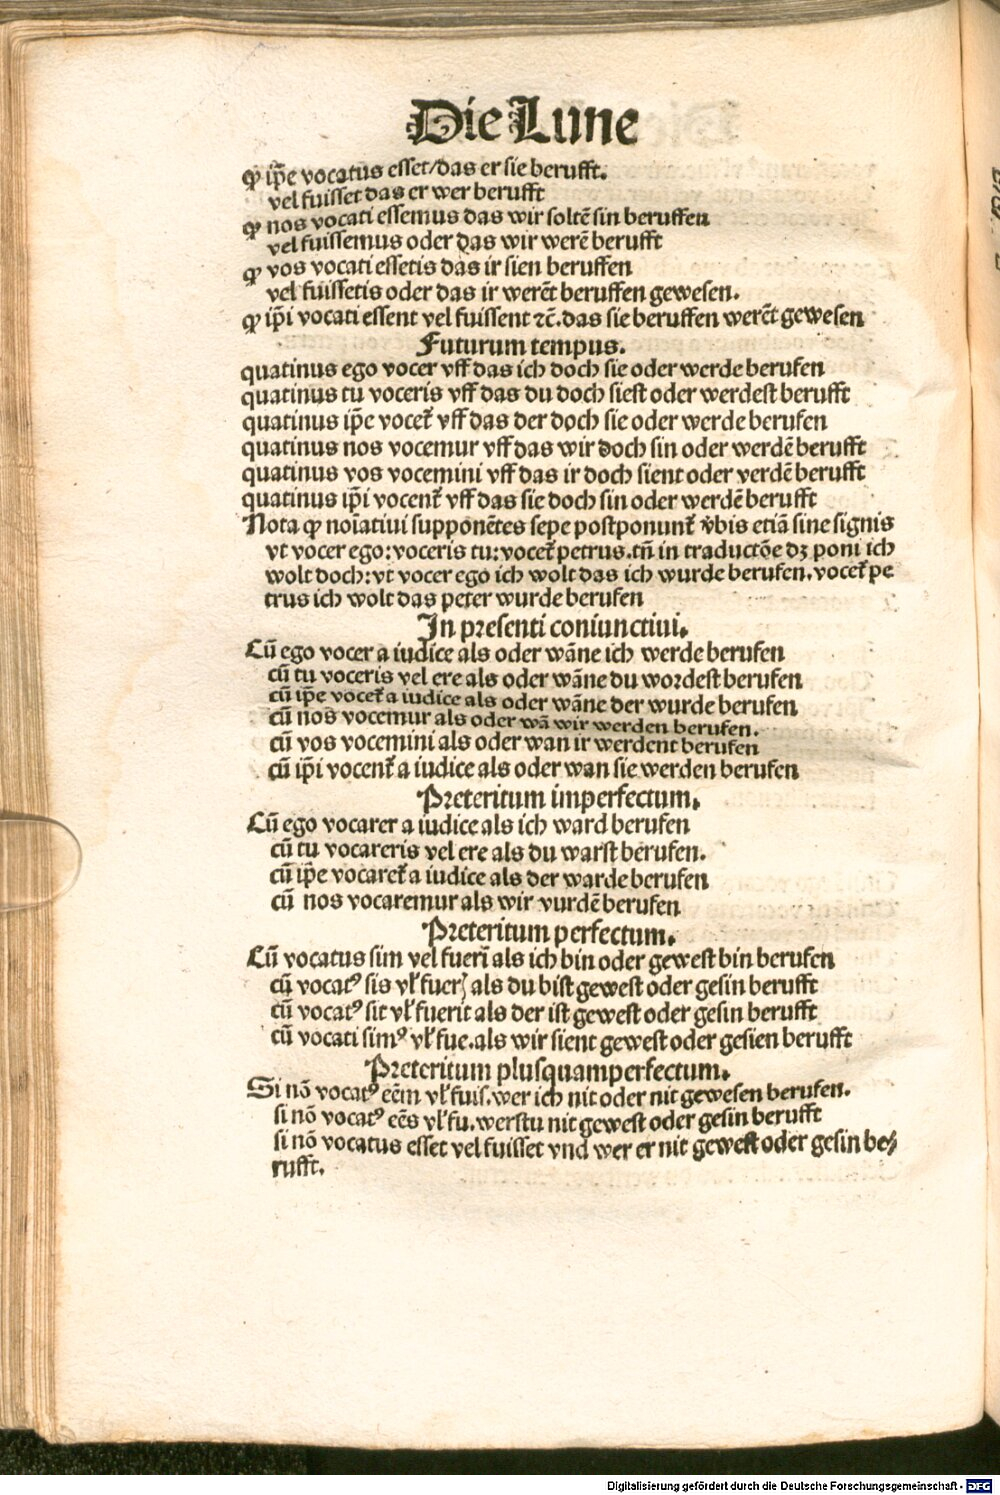 Die Lune
ꝙ ip̄e vocatus esset/das er sie berufft.
vel fuisset das er wer berufft
ꝙ nos vocati essemus das wir soltē sin beruffen
vel fuissemus oder das wir werē berufft
ꝙ vos vocati essetis das ir sien beruffen
vel fuissetis oder das ir werēt beruffen gewesen.
ꝙ ip̄i vocati essent vel fuissent ⁊c̄.das sie beruffen werēt gewesen
Futurum tempus.
quatinus ego vocer vff das ich doch sie oder werde berufen
quatinus tu voceris vff das du doch siest oder werdest berufft
quatinus ip̄e vocet̄ vff das der doch sie oder werde berufen
quatinus nos vocemur vff das wir doch sin oder werdē berufft
quatinus vos vocemini vff das ir doch sient oder verdē berufft
quatinus ip̄i vocent̄ vff das sie doch sin oder werdē berufft
Nota ꝙ noīatiui supponētes sepe postponunt̄ v̄bis etiā sine signis
vt vocer ego:voceris tu:vocet̄ petrus.tn̄ in traductōe dꝫ poni ich
wolt doch:vt vocer ego ich wolt das ich wurde berufen.vocet̄ pe
trus ich wolt das peter wurde berufen
In presenti coniunctiui.
Cū ego vocer a iudice als oder wāne ich werde berufen
cū tu voceris vel ere als oder wāne du wordest berufen
cū ip̄e vocet̄ a iudice als oder wāne der wurde berufen
cū nos vocemur als oder wā wir werden berufen.
cū vos vocemini als oder wan ir werdent berufen
cū ip̄i vocent̄ a iudice als oder wan sie werden berufen
Preteritum imperfectum.
Cū ego vocarer a iudice als ich ward berufen
cū tu vocareris vel ere als du warst berufen.
cū ip̄e vocaret̄ a iudice als der warde berufen
cū nos vocaremur als wir vurdē berufen
Preteritum perfectum.
Cū vocatus sim vel fueri̅ als ich bin oder gewest bin berufen
cū vocatꝰ sis vl̓ fuer als du bist gewest oder gesin berufft
cū vocatꝰ sit vl̓ fuerit als der ist gewest oder gesin berufft
cū vocati simꝰ vl̓ fue.als wir sient gewest oder gesien berufft
Preteritum plusquamperfectum.
Si nō vocatꝰ eēm vl̓ fuis.wer ich nit oder nit gewesen berufen.
si nō vocatꝰ eēs vl̓ fu.werstu nit gewest oder gesin berufft
si nō vocatus esset vel fuisset vnd wer er nit gewest oder gesin be⸗
rufft.
Digitalisierung gefördert durch die Deutsche Forschungsgemeinschaft - DFG